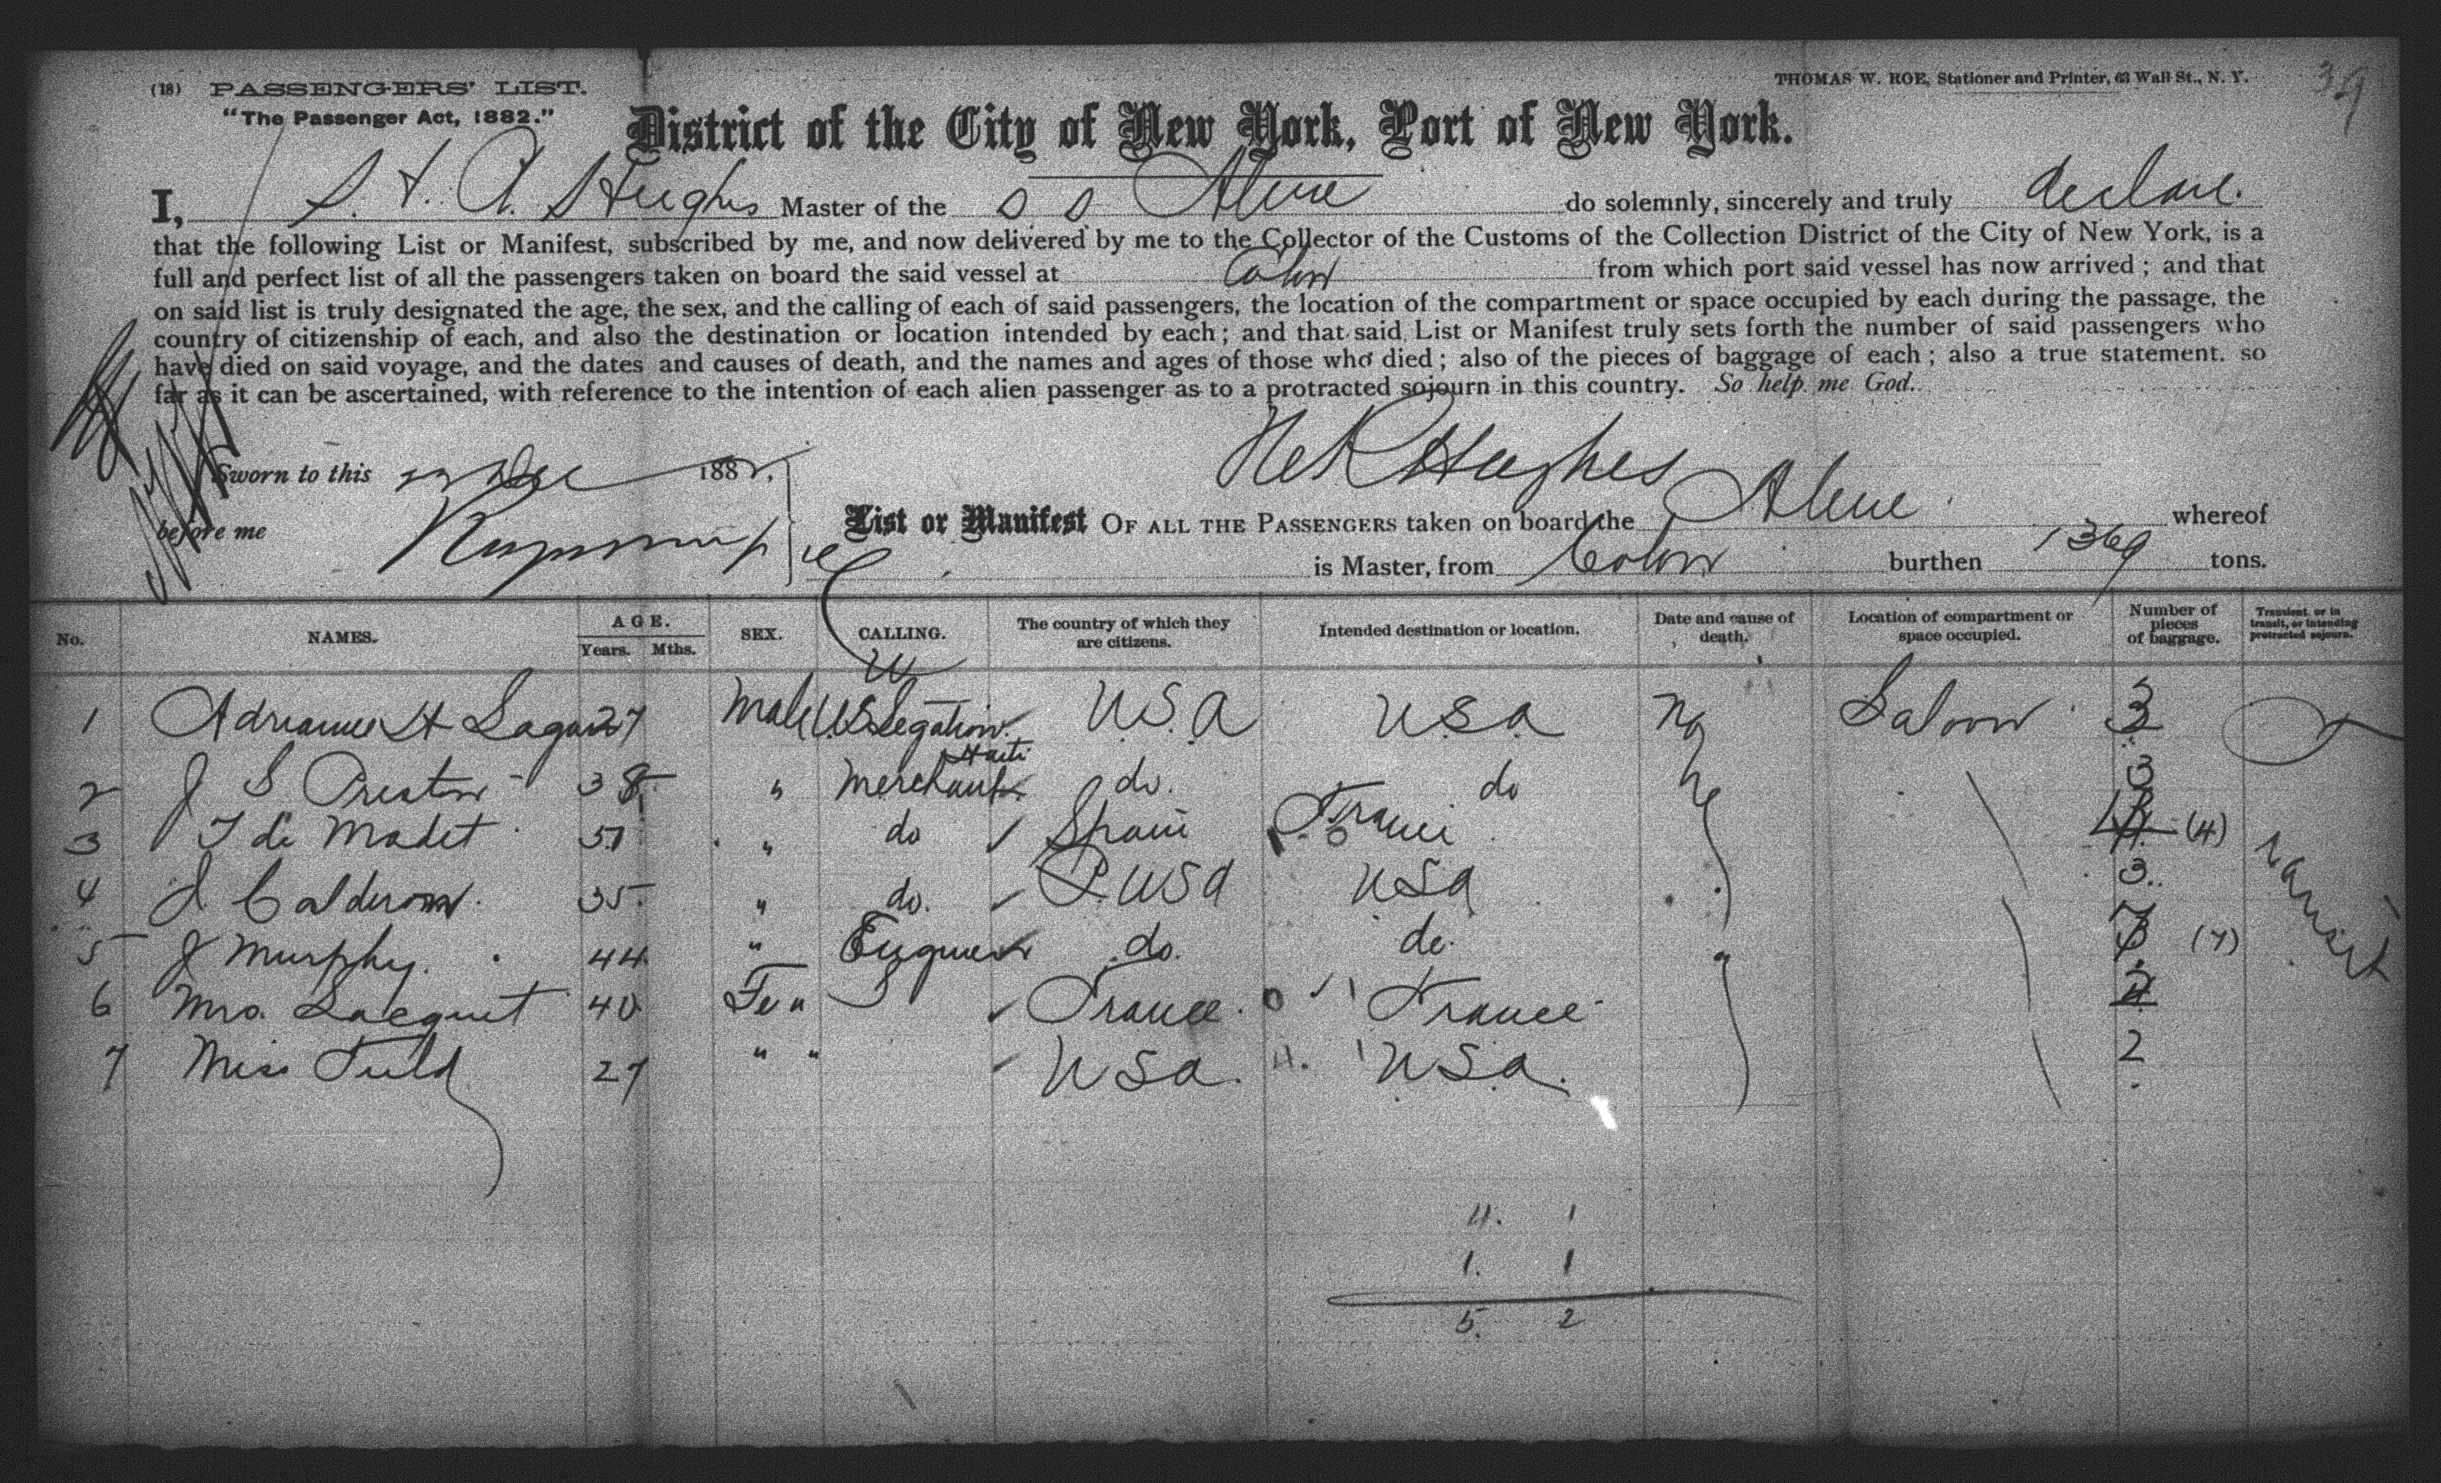 (18) PASSENGERS' LIST.
"The Passenger Act, 1882."
THOMAS W. ROE, Stationer and Printer, 63 Wall St., N. Y.
39
District of the City of New York, Port of New York.
I, Hughs Master of the S S Alene do solemnly, sincerely and truly declare.
that the following List or Manifest, subscribed by me, and now delivered by me to the Collector of the Customs of the Collection District of the City of New York, is a
full and perfect list of all the passengers taken on board the said vessel at Colon from which port said vessel has now arrived ; and that
on said list is truly designated the age, the sex, and the calling of each of said passengers, the location of the compartment or space occupied by each during the passage, the
country of citizenship of each, and also the destination or location intended by each ; and that said List or Manifest truly sets forth the number of said passengers who
have died on said voyage, and the dates and causes of death, and the names and ages of those who died ; also of the pieces of baggage of each ; also a true statement. so
far as it can be ascertained, with reference to the intention of each alien passenger as to a protracted sojourn in this country. So help me God.
Hughes
Sworn to this Dec 188
before me
List or Manifest OF ALL THE PASSENGERS taken on board the Alene whereof
is Master, from Colon burthen 1369 tons.
No. NAMES. AGE. Years. Mths. SEX. CALLING. The country of which they are citizens. Intended destination or location. Date and cause of death. Location of compartment or space occupied. Number of pieces of baggage. Transient, or in transit, or intending protracted sojourn.
1 H 27 Male US Legation Haiti U.S.A U.S.A Saloon 3
2 J S Preston 38 " Merchant do. do 3
3 de Madet 51 " do Spain France (4)
4 J Calderon 35 " do. USA USA 3
5 J Murphy. 44 " Engineer do. do. (7)
6 Mrs. Lacquet 40 Fe France France
7 Miss 27 " " USA. 4. 1 USA. 2
Transit
4. 1
1. 1
5. 2